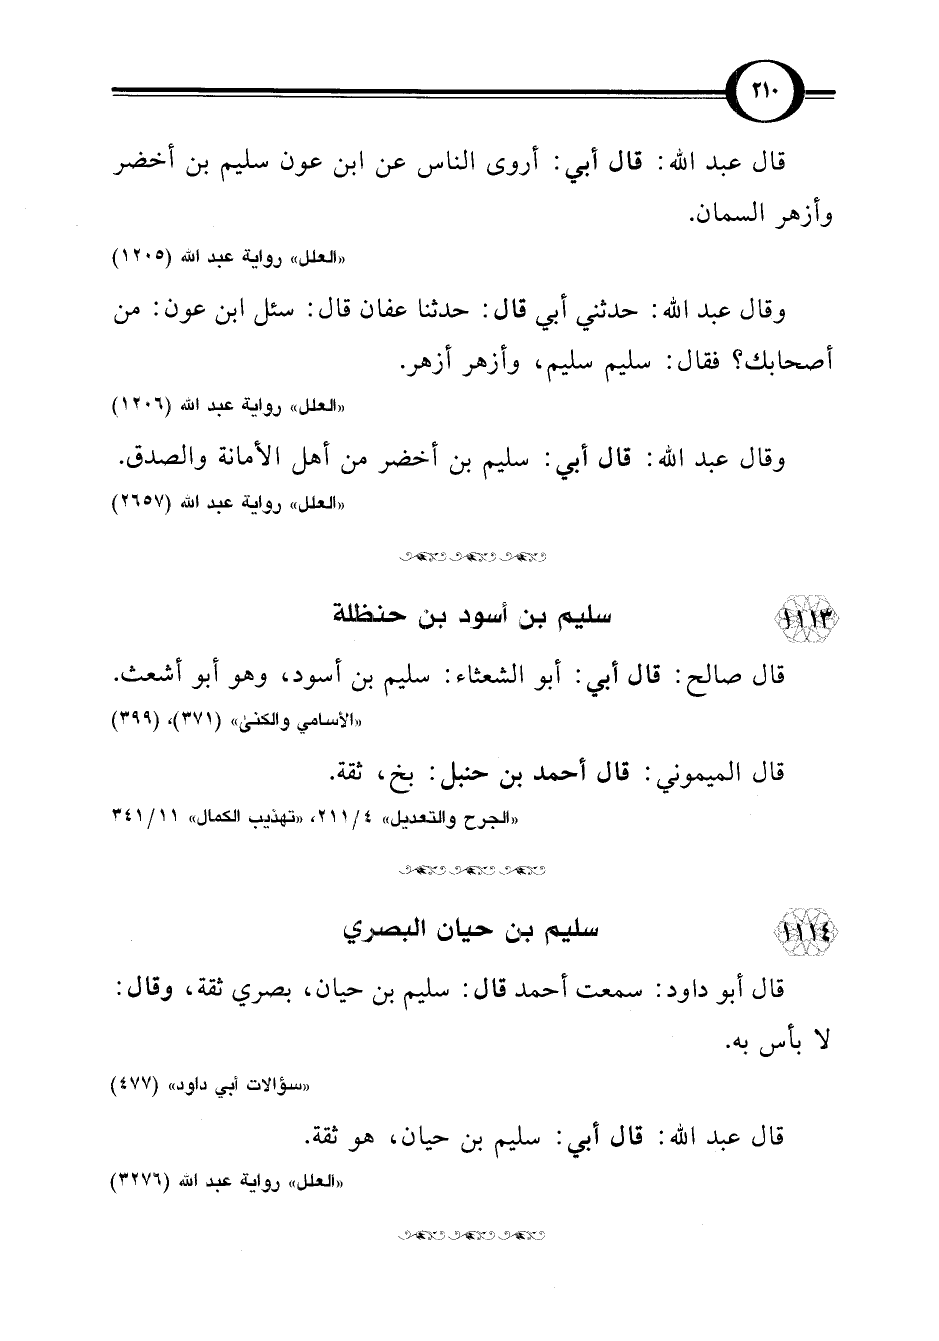 ٢١٠
قال عبد الله: قال أبي: أروى الناس عن ابن عون سليم بن أخضر
وأزهر السمان.
«العلل» رواية عبد الله (١٢٠٥)
وقال عبد الله: حدثني أبي قال: حدثنا عفان قال: سئل ابن عون: من
أصحابك؟ فقال: سليم سليم، وأزهر أزهر.
«العلل» رواية عبد الله (١٢٠٦)
وقال عبد الله: قال أبي: سليم بن أخضر من أهل الأمانة والصدق.
«العلل» رواية عبد الله (٢٦٥٧)
١١١٣ سليم بن أسود بن حنظلة
قال صالح: قال أبي: أبو الشعثاء: سليم بن أسود، وهو أبو أشعث.
«الأسامي والكنىٰ» (٣٧١)، (٣٩٩)
قال الميموني: قال أحمد بن حنبل: بخ، ثقة.
«الجرح والتعديل» ٤/ ٢١١، «تهذيب الكمال» ١١/ ٣٤١
١١١٤ سليم بن حيان البصري
قال أبو داود: سمعت أحمد قال: سليم بن حيان، بصري ثقة، وقال:
لا بأس به.
«سؤالات أبي داود» (٤٧٧)
قال عبد الله: قال أبي: سليم بن حيان، هو ثقة.
«العلل» رواية عبد الله (٣٢٧٦)